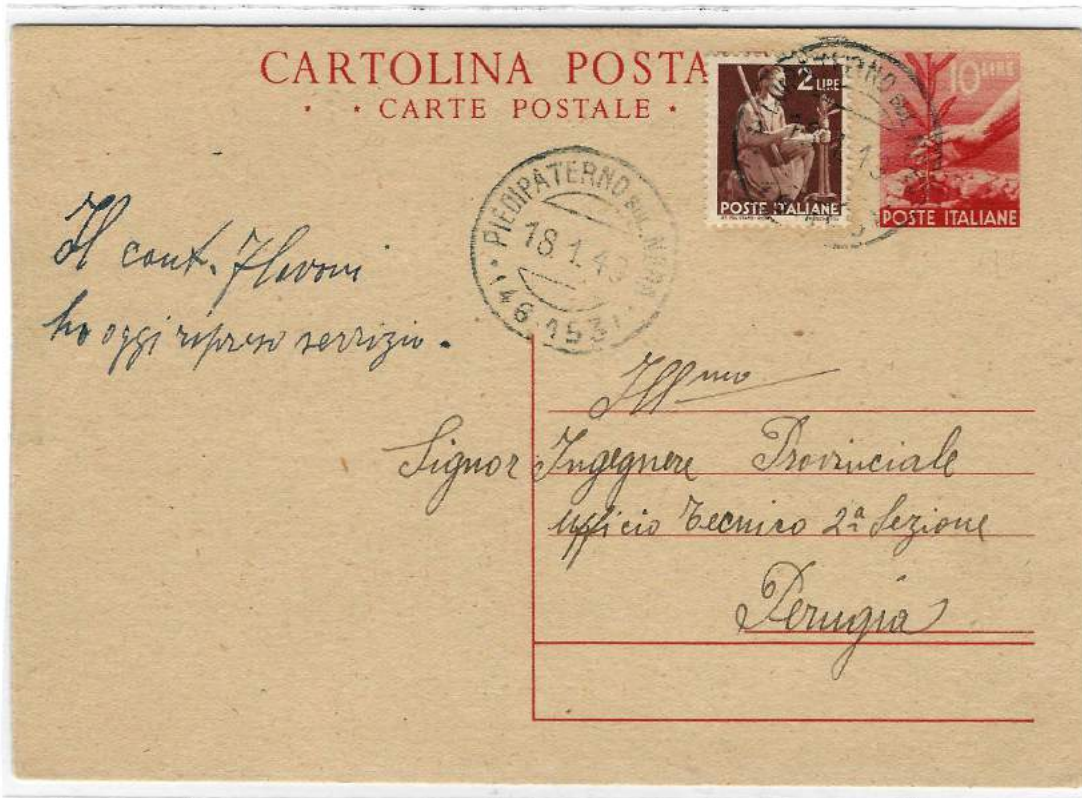 CARTOLINA POSTA
• • CARTE POSTALE •
2 LIRE
POSTE ITALIANE
10 LIRE
POSTE ITALIANE
PIEDIPATERNO SUL NERA
18.1.49
(46-153)
Il cant. Flavoni
ha oggi ripreso servizio.
Ill mo
Signor Ingegnere Provinciale
Ufficio Tecnico 2ª Sezione
Perugia